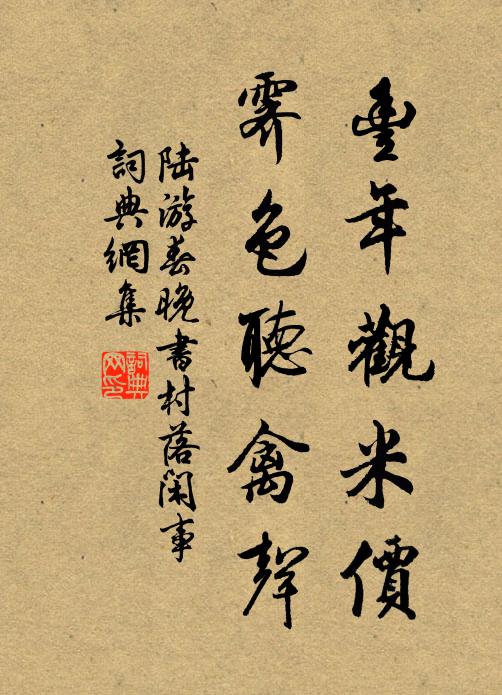 豐年觀米價
霽色聽禽聲
陸游春晚書村落閑事
詞典網集
詞典
网印